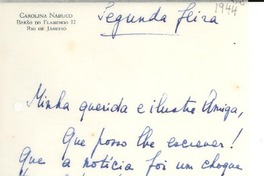 1944
CAROLINA NABUCO
BARÃO DO FLAMENGO 22
RIO DE JANEIRO
Segunda feira
Minha querida e ilustre Amiga,
Que posso lhe escrever!
Que a notícia foi um choque